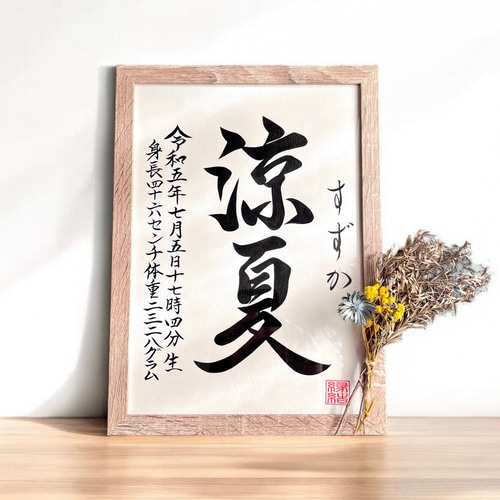 すずか
涼夏
令和五年七月五日十七時四分生
身長四十六センチ体重二三二八グラム